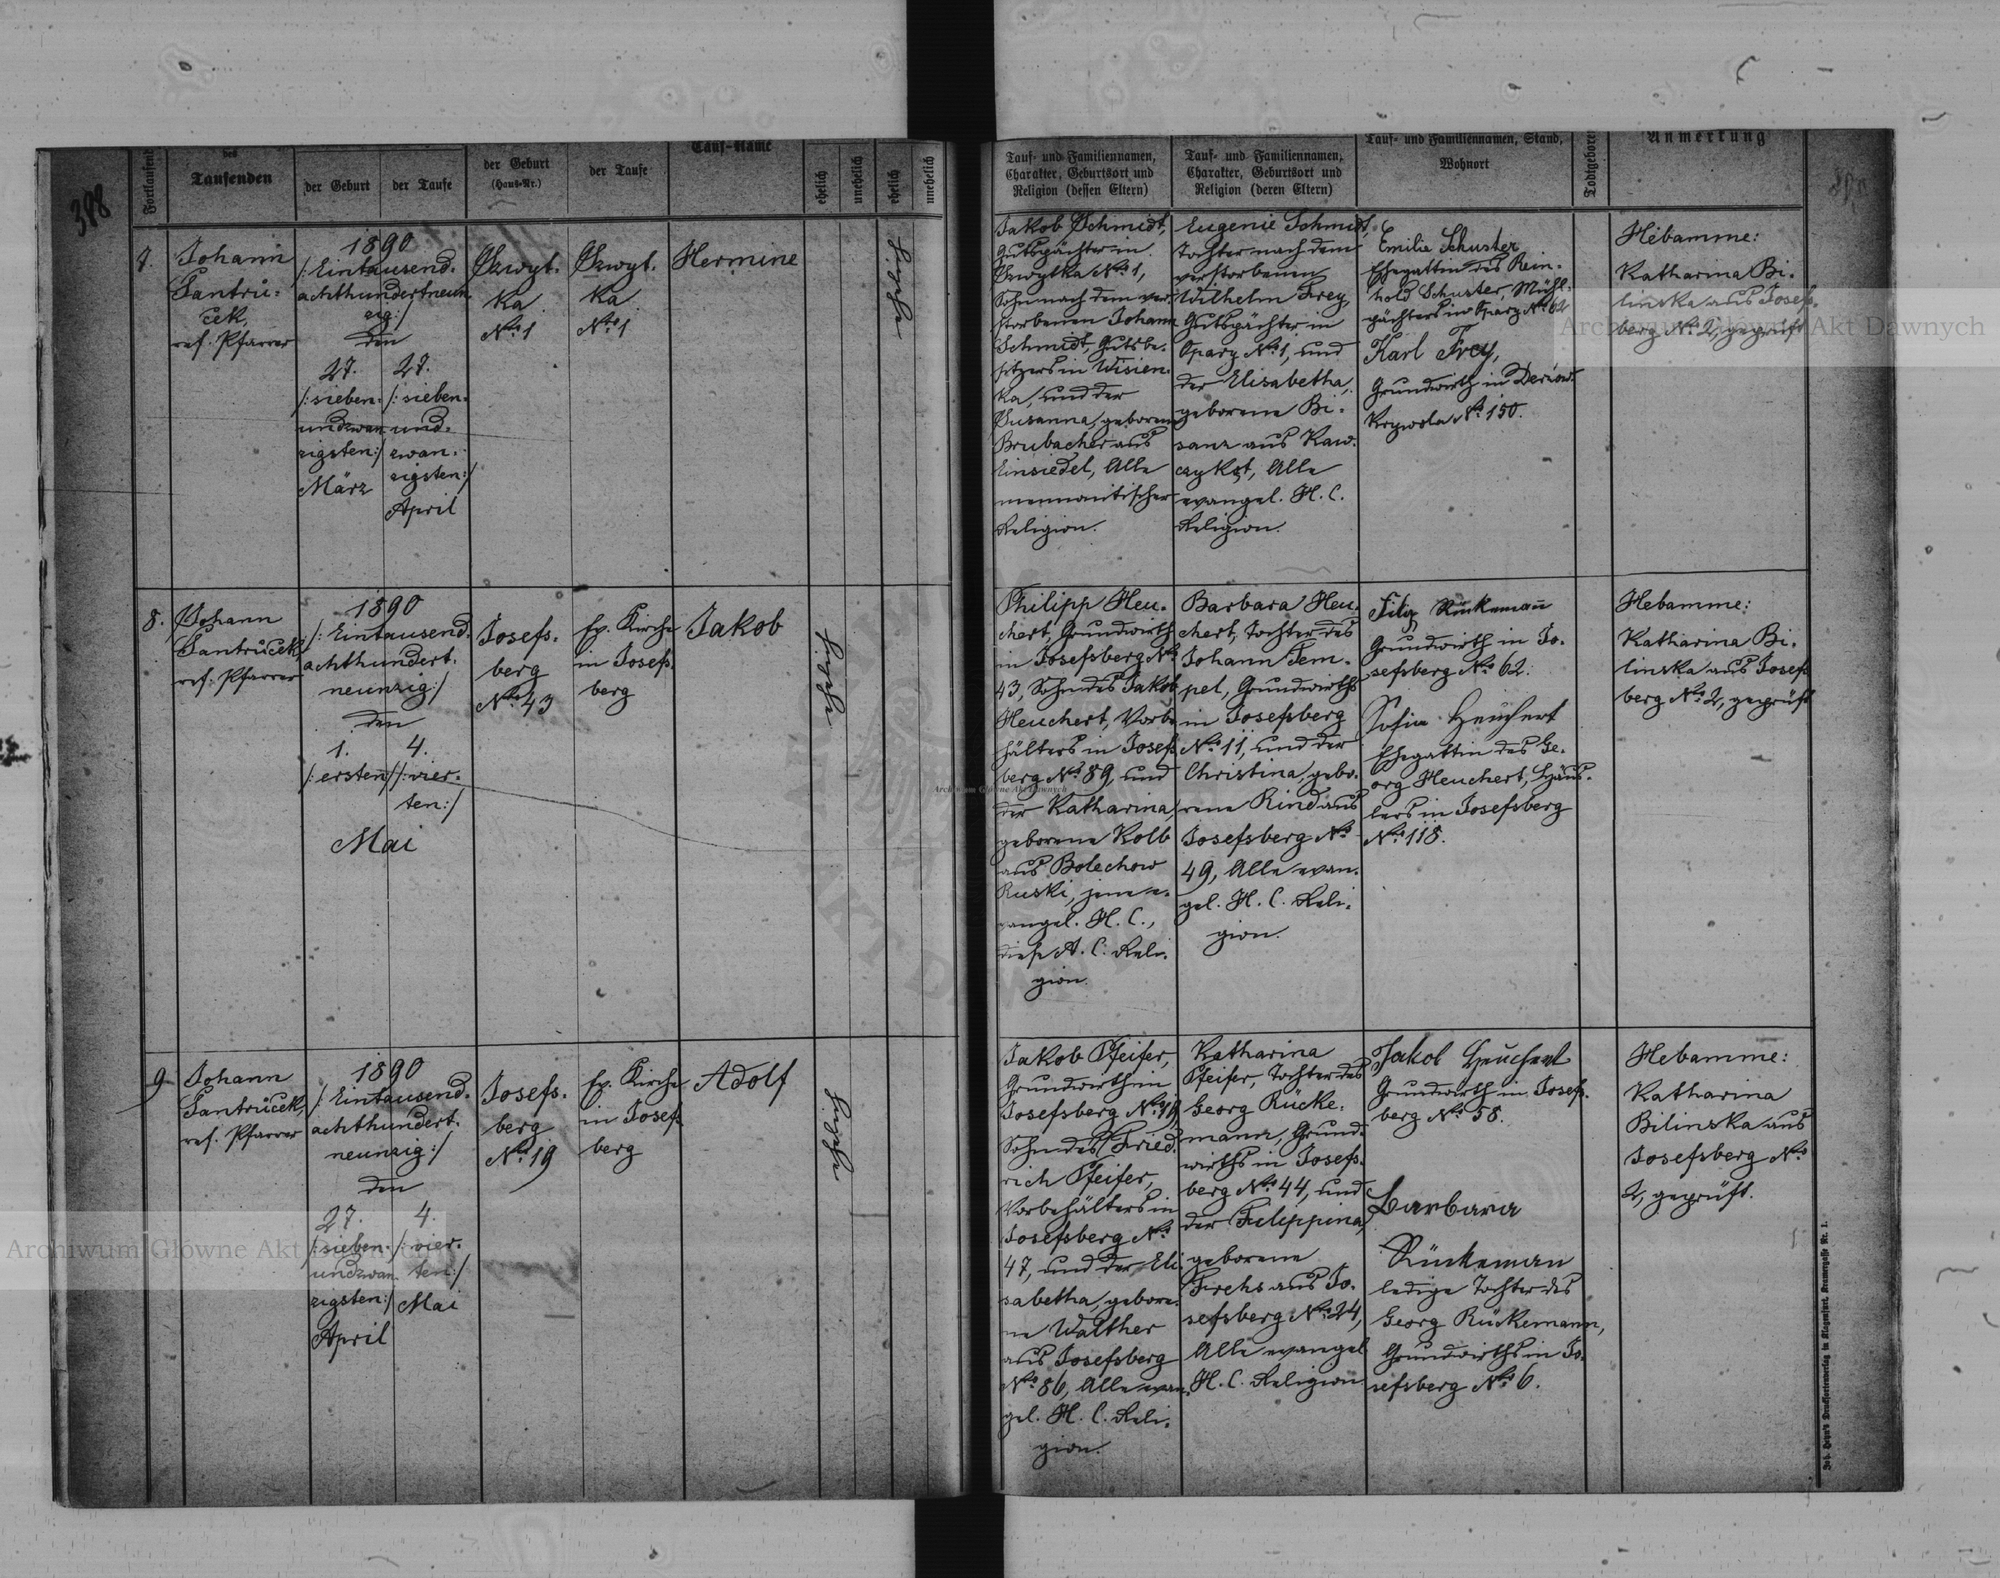 388
Fortlaufend
des
Taufenden
der Geburt
der Taufe
der Geburt
(Haus-Nr.)
der Taufe
Tauf-Name
ehelich
unehelich
ehelich
unehelich
7.
Johann
Jantrů-
cek,
ref. Pfarrer
1890
/: Eintausend-
achthundertneun-
zig:/
den
27.
/:sieben-
undzwan-
zigsten:/
März
27.
/:sieben-
und-
zwan-
zigsten:/
April
Szwyt-
ka
No. 1
Szwyt-
ka
No. 1
Hermine
8.
Johann
Jantrůcek
ref. Pfarrer
1890
/: Eintausend-
achthundert-
neunzig:/
den
1.
/:ersten:/
4.
/:vier-
ten:/
Mai
Josefs-
berg
No. 43
Ev. Kirche
in Josefs-
berg
Jakob
9
Johann
Jantrůcek,
ref. Pfarrer
1890
/: Eintausend-
achthundert-
neunzig:/
den
27.
/:sieben-
undzwan-
zigsten:/
April
4.
/:vier-
ten:/
Mai
Josefs-
berg
No. 19
Ev. Kirche
in Josefs-
berg
Adolf
Tauf- und Familiennamen,
Charakter, Geburtsort und
Religion (dessen Eltern)
Tauf- und Familiennamen,
Charakter, Geburtsort und
Religion (deren Eltern)
Tauf- und Familiennamen, Stand,
Wohnort
Todtgeboren
Anmerkung
Jakob Schmidt,
Gutspächter in
Szwytka No. 1,
Sohn nach dem ver-
storbenen Johann
Schmidt, Gutsbe-
sitzers in Wisien-
ka, und der
Susanna, geborene
Brubacher aus
Einsiedel, Alle
mennonitischer
Religion.
Eugenie Schmidt,
Tochter nach dem
verstorbenen
Wilhelm Frey,
Gutspächter in
Spary No. 1, und
der Elisabetha,
geborene Bi-
sanz aus Kaw-
czykąt, Alle
evangel. H. C.
Religion.
Emilie Schuster
Ehegattin des Rein-
hold Schuster, Mühl-
pächters in Spary No. 62
Karl Frey,
Grundwirth in Derżów
Krywola No. 150.
Hebamme:
Katharina Bi-
linska aus Josefs-
berg No. 2, geprüft
Philipp Heu-
chert, Grundwirth
in Josefsberg No.
43, Sohn des Jakob
Heuchert, Vorbe-
hälters in Josefs-
berg No. 89, und
der Katharina,
geborene Kolb
aus Bolechow
Ruski, jene e-
vangel. H. C.,
diese A. C. Reli-
gion.
Barbara Heu-
chert, Tochter des
Johann Tem-
pel, Grundwirths
in Josefsberg
No. 11, und der
Christina, gebo-
rene Rind aus
Josefsberg No.
49, Alle evan-
gel. H. C. Reli-
gion.
Filip Rückemañ
Grundwirth in Jo-
sefsberg No. 62.
Sofia Heuchert
Ehegattin des Ge-
org Heuchert, Häus-
lers in Josefsberg
No. 118.
Hebamme:
Katharina Bi-
linska aus Josefs-
berg No. 2, geprüft
Jakob Pfeifer,
Grundwirth in
Josefsberg No. 19,
Sohn des Fried-
rich Pfeifer,
Vorbehälters in
Josefsberg No.
47, und der Eli-
sabetha, gebore-
ne Walther
aus Josefsberg
No. 86, Alle evan-
gel. H. C. Reli-
gion.
Katharina
Pfeifer, Tochter des
Georg Rücke-
mann, Grund-
wirths in Josefs-
berg No. 44, und
der Filippina,
geborene
Frehs aus Jo-
sefsberg No. 24,
Alle evangel.
H. C. Religion.
Jakob Heuchert
Grundwirth in Josefs-
berg No. 58.
Barbara
Rückeman
ledige Tochter des
Georg Rückemann,
Grundwirths in Jo-
sefsberg No. 6.
Hebamme:
Katharina
Bilinska aus
Josefsberg No.
2, geprüft.
Joh. Heyn's Drucksortenverlag in Klagenfurt, Kramergasse Nr. 1.
Archiwum Główne Akt Dawnych
Archiwum Główne Akt Dawnych
Archiwum Główne Akt